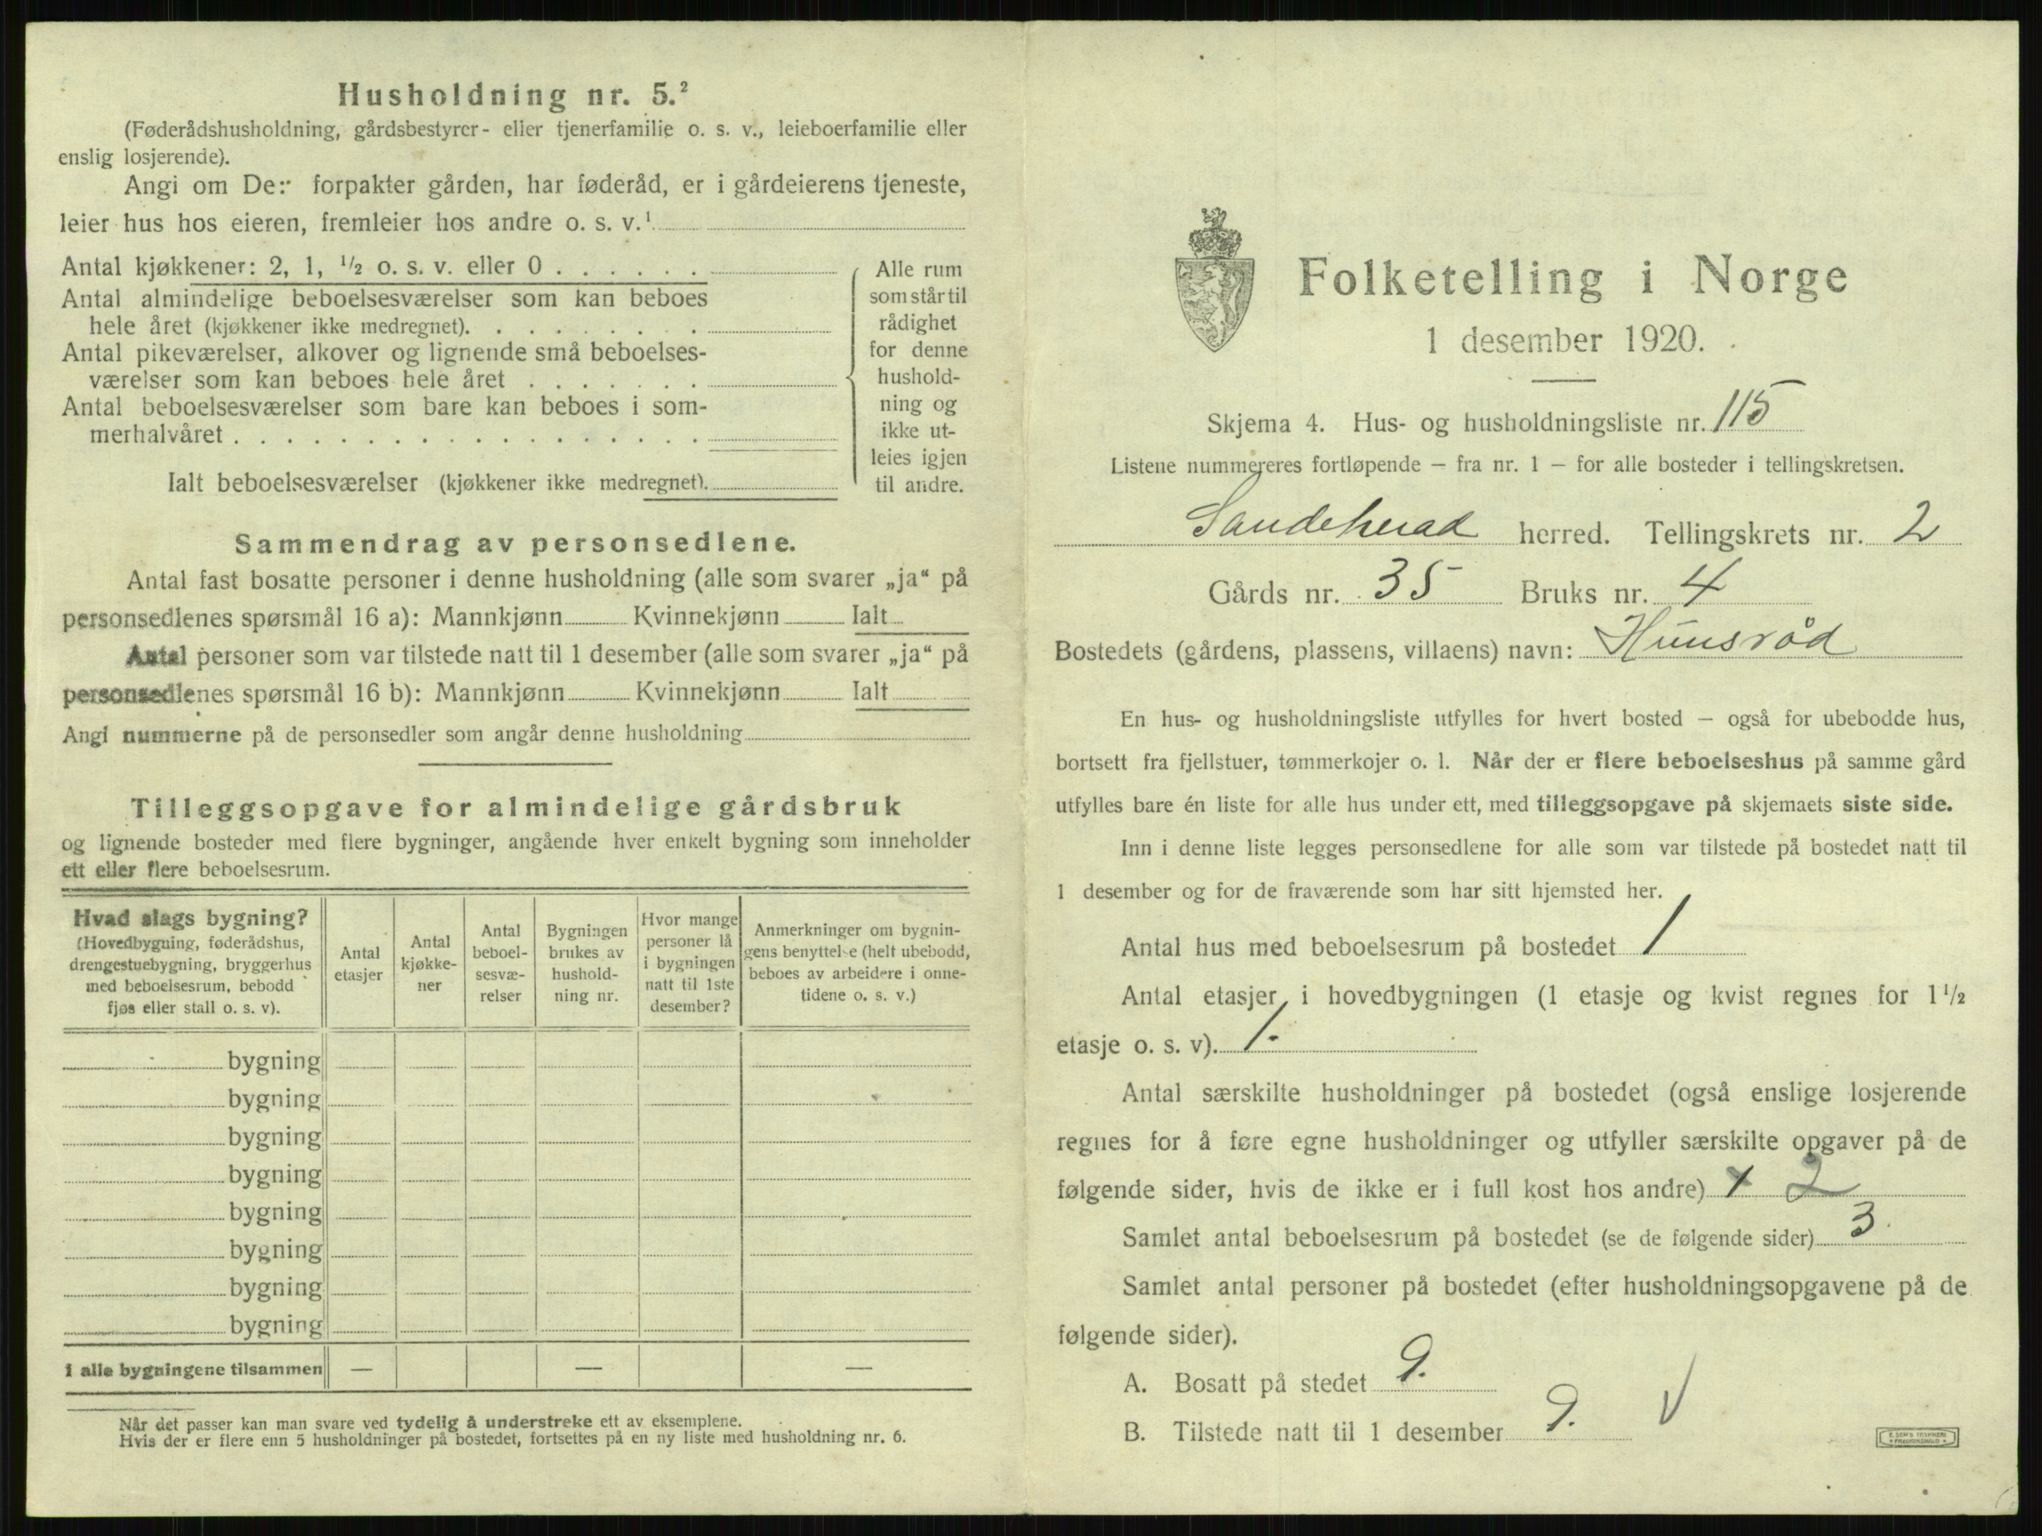 Husholdning nr. 5.²
(Føderådshusholdning, gårdsbestyrer- eller tjenerfamilie o. s. v., leieboerfamilie eller
enslig losjerende).
Angi om De: forpakter gården, har føderåd, er i gårdeierens tjeneste,
leier hus hos eieren, fremleier hos andre o. s. v.¹
Antal kjøkkener: 2, 1, ½ o. s. v. eller 0 . . . . . .
Antal almindelige beboelsesværelser som kan beboes
hele året (kjøkkener ikke medregnet). . . . . . . . .
Antal pikeværelser, alkover og lignende små beboelses-
værelser som kan beboes hele året . . . . . . .
Antal beboelsesværelser som bare kan beboes i som-
merhalvåret . . . . . . . . . . . . . . . . . .
Ialt beboelsesværelser (kjøkkener ikke medregnet).
Alle rum
som står til
rådighet
for denne
hushold-
ning og
ikke ut-
leies igjen
til andre.
Sammendrag av personsedlene.
Antal fast bosatte personer i denne husholdning (alle som svarer „ja“ på
personsedlenes spørsmål 16 a): Mannkjønn Kvinnekjønn Ialt
Antal personer som var tilstede natt til 1 desember (alle som svarer „ja“ på
personsedlenes spørsmål 16 b): Mannkjønn Kvinnekjønn Ialt
Angi nummerne på de personsedler som angår denne husholdning
Tilleggsopgave for almindelige gårdsbruk
og lignende bosteder med flere bygninger, angående hver enkelt bygning som inneholder
ett eller flere beboelsesrum.
Hvad slags bygning?
(Hovedbygning, føderådshus,
drengestuebygning, bryggerhus
med beboelsesrum, bebodd
fjøs eller stall o. s. v).
Antal
etasjer
Antal
kjøkke-
ner
Antal
beboel-
sesvæ-
relser
Bygningen
brukes av
hushold-
ning nr.
Hvor mange
personer lå
i bygningen
natt til 1ste
desember?
Anmerkninger om bygnin-
gens benyttelse (helt ubebodd,
beboes av arbeidere i onne-
tidene o. s. v.)
bygning
bygning
bygning
bygning
bygning
bygning
bygning
bygning
i alle bygningene tilsammen — — —
Når det passer kan man svare ved tydelig å understreke ett av eksemplene.
Hvis der er flere enn 5 husholdninger på bostedet, fortsettes på en ny liste med husholdning nr. 6.
Folketelling i Norge
1 desember 1920.
Skjema 4. Hus- og husholdningsliste nr. 115
Listene nummereres fortløpende – fra nr. 1 – for alle bosteder i tellingskretsen.
Sandeherad herred. Tellingskrets nr. 2
Gårds nr. 35 Bruks nr. 4
Bostedets (gårdens, plassens, villaens) navn: Hunsrød
En hus- og husholdningsliste utfylles for hvert bosted – også for ubebodde hus,
bortsett fra fjellstuer, tømmerkojer o. l. Når der er flere beboelseshus på samme gård
utfylles bare én liste for alle hus under ett, med tilleggsopgave på skjemaets siste side.
Inn i denne liste legges personsedlene for alle som var tilstede på bostedet natt til
1 desember og for de fraværende som har sitt hjemsted her.
Antal hus med beboelsesrum på bostedet 1
Antal etasjer i hovedbygningen (1 etasje og kvist regnes for 1½
etasje o. s. v). 1.
Antal særskilte husholdninger på bostedet (også enslige losjerende
regnes for å føre egne husholdninger og utfyller særskilte opgaver på de
følgende sider, hvis de ikke er i full kost hos andre) 2
Samlet antal beboelsesrum på bostedet (se de følgende sider) 3
Samlet antal personer på bostedet (efter husholdningsopgavene på de
følgende sider).
A. Bosatt på stedet 9.
B. Tilstede natt til 1 desember 9. V